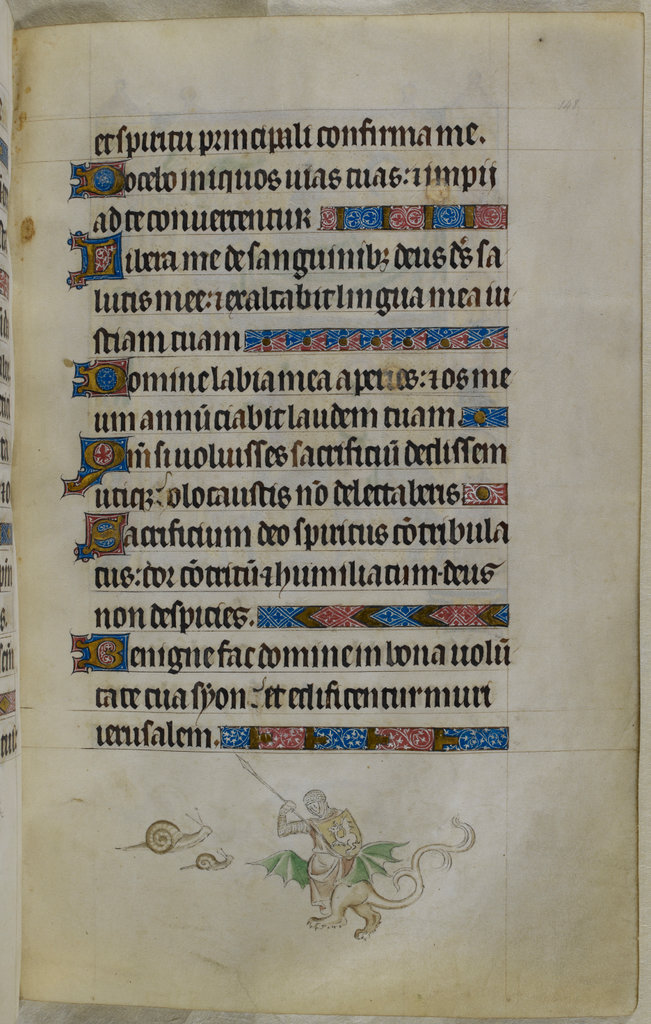 et spiritu principali confirma me.
Docebo iniquos uias tuas: ⁊ impii
ad te conuertentur
Libera me de sanguinibꝫ deus ds̄ sa
lutis mee: ⁊ exaltabit lingua mea iu
sticiam tuam
Domine labia mea aperies: ⁊ os me
um annūciabit laudem tuam.
Qm̄ si uoluisses sacrificiū dedissem
utiqꝫ: olocaustis nō delectaberis
Sacrificium deo spiritus cōtribula
tus: cor cōtritū ⁊ humiliatum deus
non despicies.
Benigne fac domine in bona uolū
tate tua syon: et edificentur muri
ierusalem.
148